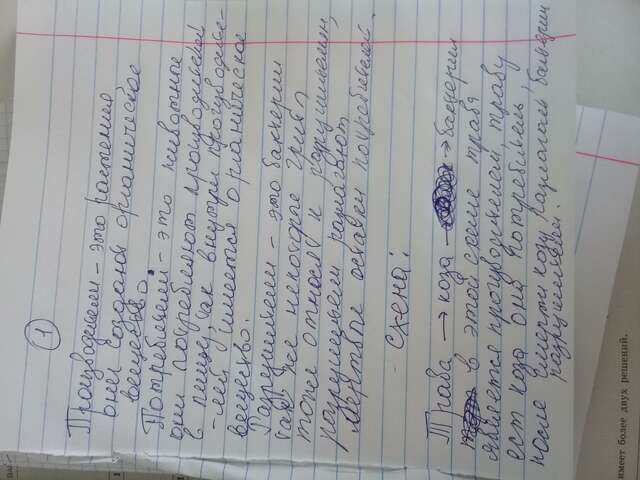 1
Производители - это растения
они создают органическое
вещество.
Потребители - это животные
они потребляют производителей
в пищу, так внутри производите-
-лей имеется органическое
вещество.
Разрушители - это бактерии
так же некоторые грибы
тоже относят к разрушителям,
разрушители разлагают
мёртвые остатки потребителей.
- схема:
Трава → коза → бактерии
в этой схеме трава
является производителем, траву
ест коза она потребитель,
после смерти козу разлагают бактерии
разрушители.
имеет более двух решений.